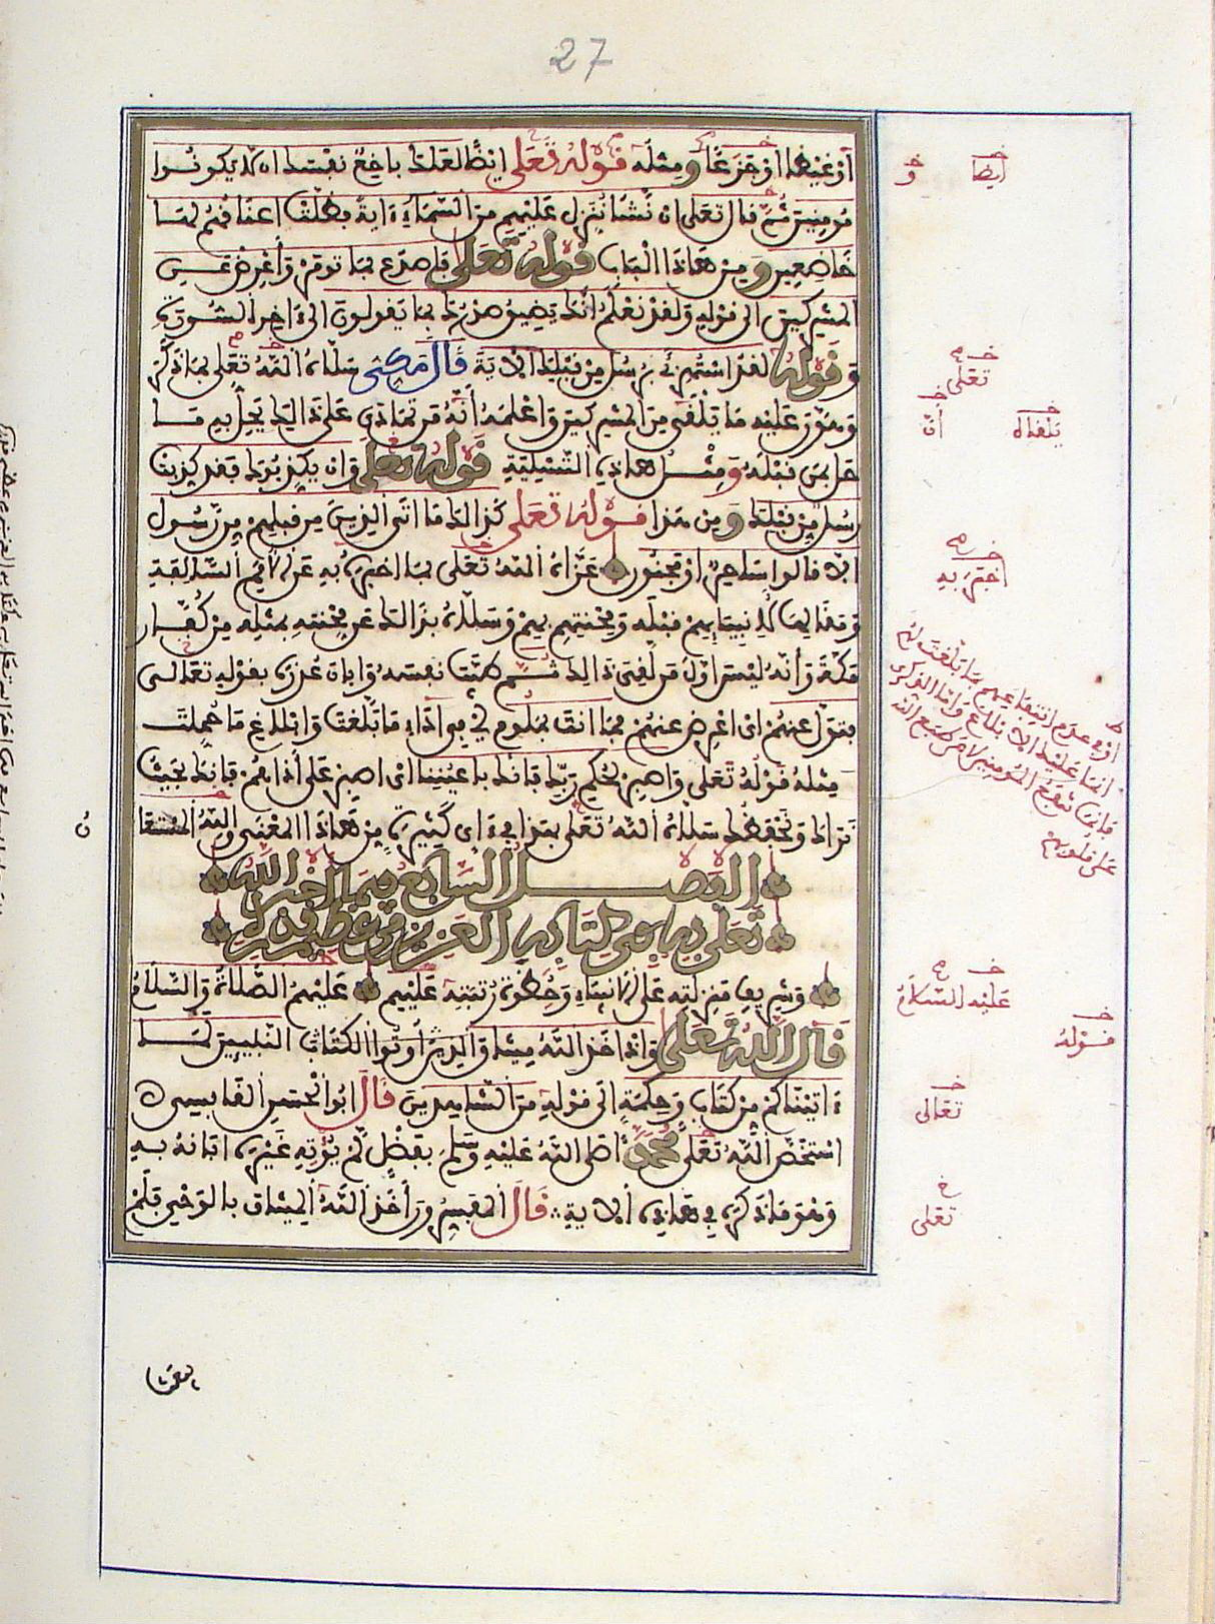 27
أو غيظا أو جزعا ومثله قوله تعلى أيضا لعلك باخع نفسك ان لا يكونوا
مومنين ثم قال تعلى ان نشأ ننزل عليهم من السماء ءاية فظلت اعناقهم لها
خاضعين ومن هاذا الباب قوله تعلى فاصدع بما تومر وأعرض عن
المشركين الى قوله ولقد نعلم أنك يضيق صدرك بما يقولون الى ءاخر السورة
وقوله لقد استهزئ برسل من قبلك الاية قال مكي سلاه الله تعلى بما ذكر
وهون عليه ما يلقى من المشركين واعلمه أنه من تمادى على ذالك يحل به ما
حل بمن قبله ومثل هاذه التسلية قوله تعلى وان يكذبوك فقد كذبت
رسل من قبلك ومن هذا قوله تعلى كذالك ما اتى الذين من قبلهم من رسول
الا قالوا ساحر او مجنون عزاه الله تعلى بما اخبره به عن الأمم السالفة
ومقالها لانبيائهم قبله ومحنتهم بهم وسلاه بذالك عن محنته بمثله من كفار
مكة وأنه ليس اول من لقي ذالك ثم طيب نفسه وابان عذره بقوله تعالى
فتول عنهم اي اعرض عنهم فما انت بملوم اي في اداء ما بلغت وابلاغ ما حملت
مثله قوله تعلى واصبر لحكم ربك فإنك باعيننا اي اصبر على أذاهم فإنك بحيث
نراك ونحفظك سلاه الله تعلى بهذا في ءاي كثيرة من هاذا المعنى والله المستعان
الفصل السابع فيما أخبر الله
تعلى به في كتابه العزيز من عظيم قدره
وشريف منزلته على الأنبياء وحظوة رتبته عليهم عليهم الصلاة والسلام
قال الله تعلى وإذ اخذ الله ميثاق الذين أوتوا الكتاب النبيين لما
ءاتيناكم من كتاب وحكمة الى قوله من الشاهدين قال ابوا الحسن القابسي
استخص الله تعلى محمدا صلى الله عليه وسلم بفضل لم يؤته غيره ابانه به
وهو ما ذكره في هاذه الاية قال المفسرون أخذ الله الميثاق بالوحي فلم
يبعث
أيضا
و
تعلى
يلقاه
أن
اخبره به
اي في عدم انتفاعهم بما بلغت لهم
انما عليك الا بلاغ واما الذكرى
فإنما تنفع المومنين لا من طبع الله
على قلوبهم
عليه السلام
قوله
تعالى
تعلى